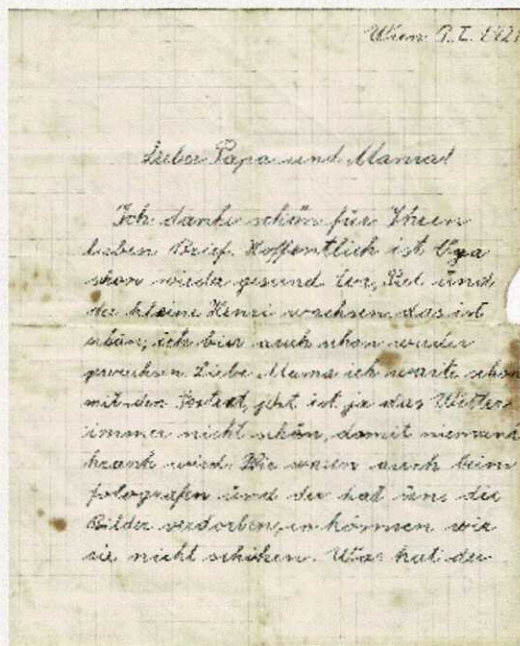 Wien 9.I. 192
Liebe Papa und Mama!
Ich danke schön für Ihren
lieben Brief. Hoffentlich ist
schon wieder gesund und
der kleine Henri wachsen das ist
schön, ich bin auch schon wieder
gewachsen. Liebe Mama ich warte schon
mit der jetzt ist ja das Wetter
immer nicht schön, damit niemand
krank wird. Wir waren auch beim
fotografen und der hat uns die
Bilder verdorben, können wir
sie nicht schiken. Was hat der